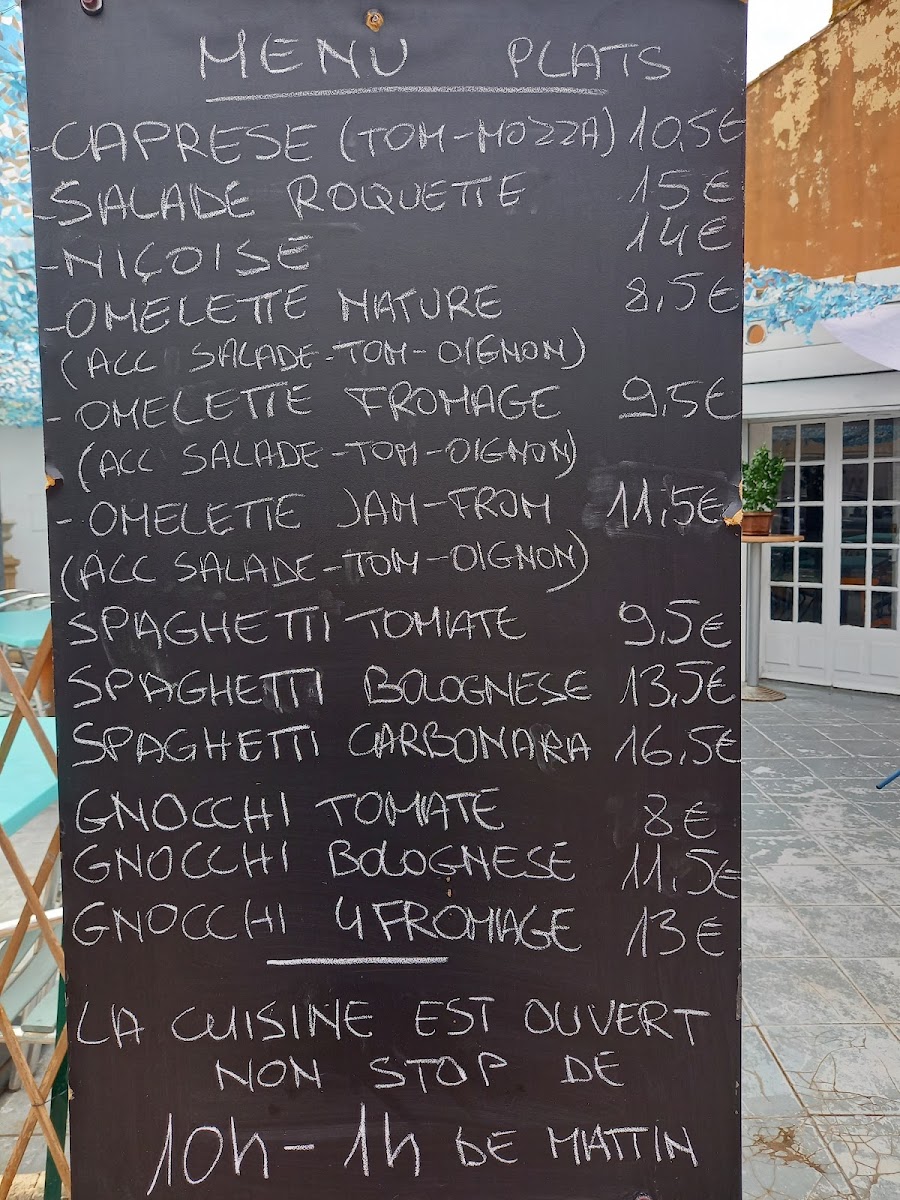 MENU PLATS
-CAPRESE (TOM-MOZZA) 10,5€
-SALADE ROQUETTE 15€
-NIÇOISE 14€
-OMELETTE NATURE 8,5€
(ACC SALADE-TOM-OIGNON)
-OMELETTE FROMAGE 9,5€
(ACC SALADE-TOM-OIGNON)
-OMELETTE JAM-FROM 11,5€
(ACC SALADE-TOM-OIGNON)
SPAGHETTI TOMATE 9,5€
SPAGHETTI BOLOGNESE 13,5€
SPAGHETTI CARBONARA 16,5€
GNOCCHI TOMATE 8€
GNOCCHI BOLOGNESE 11,5€
GNOCCHI 4FROMAGE 13€
LA CUISINE EST OUVERT
NON STOP DE
10h-1h DE MATTIN